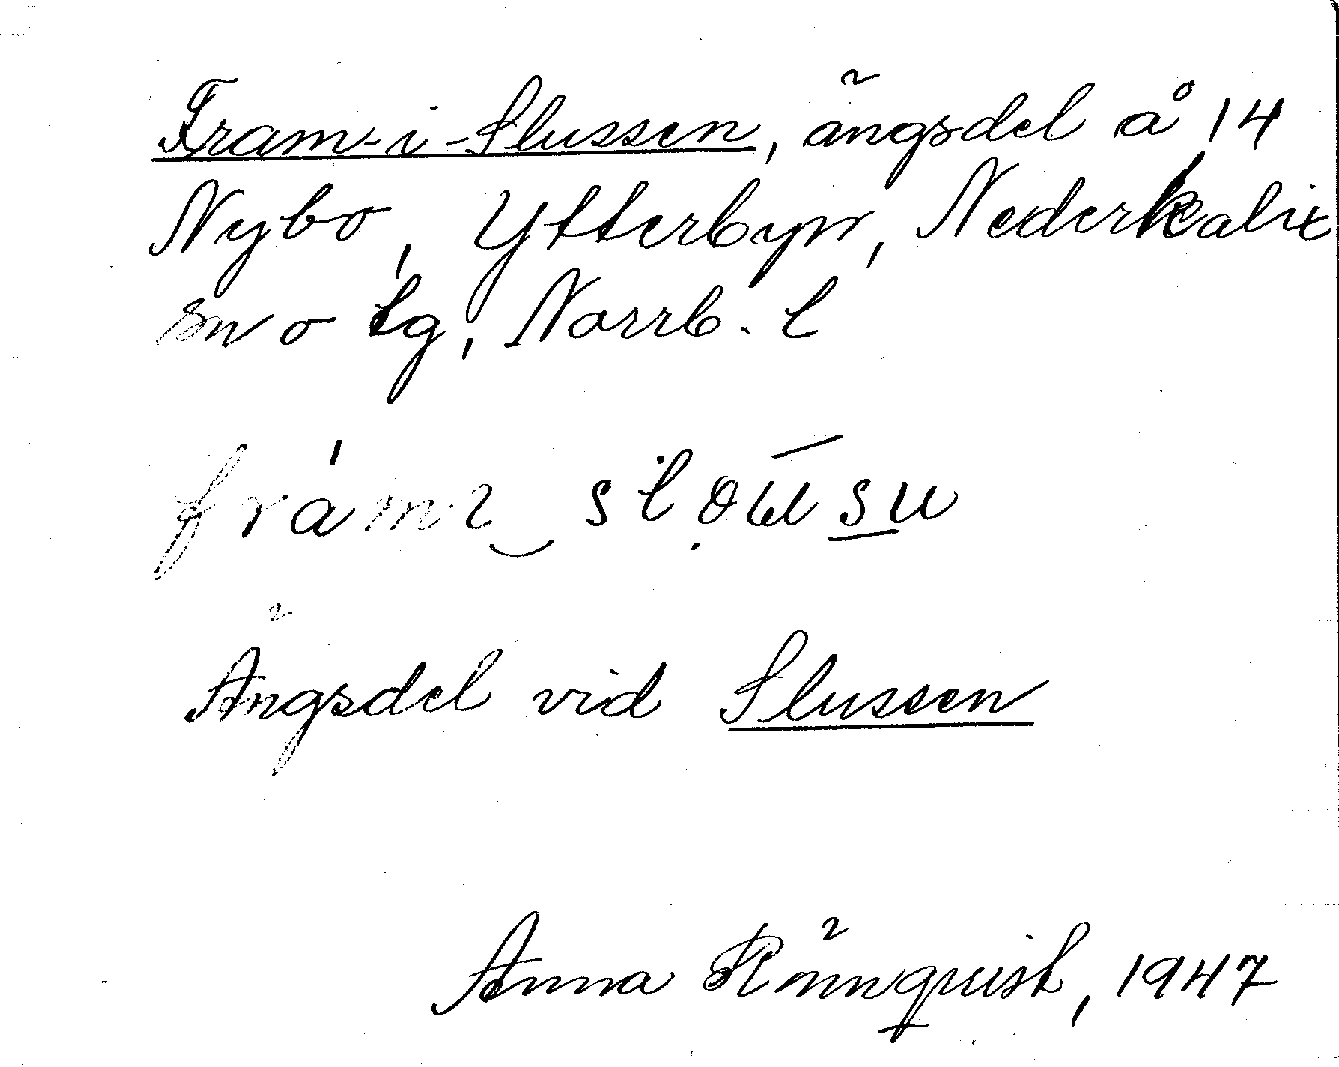 Fram-i-Slussen, ängsdel å 14
Nybo, Ytterbyn, Nederkalix
sn o tg, Norrb. l
Ängsdel vid Slussen
Anna Rönnquist, 1947